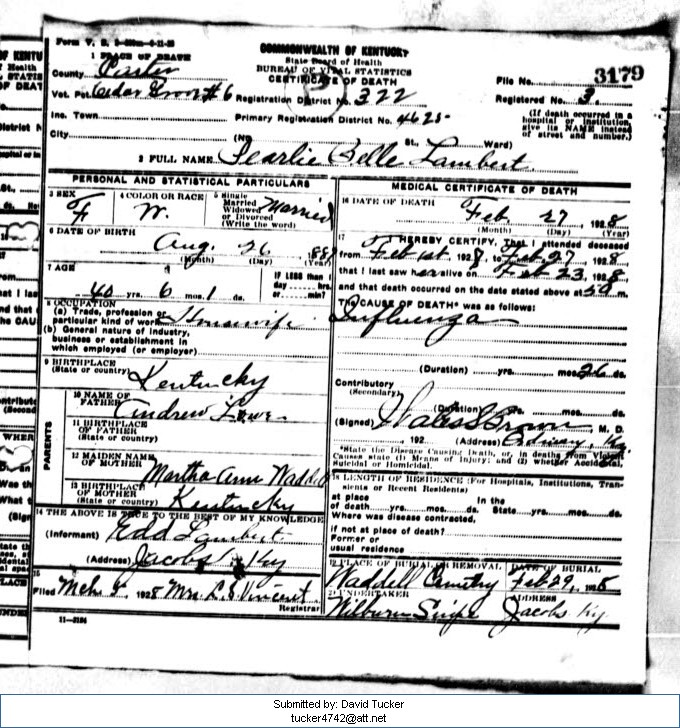 Form V. S.
COMMONWEALTH OF KENTUCKY
State Board of Health
BUREAU OF VITAL STATISTICS
CERTIFICATE OF DEATH
1 PLACE OF DEATH
County Carter
Vot. Pct. Cedar Grove #6
Registration District No. 322
File No. 3179
Registered No. 3
Inc. Town
Primary Registration District No. 4625
(If death occurred in a
hospital or institution,
give its NAME instead
of street and number.)
City (No. St., Ward)
2 FULL NAME Pearlie Belle Lambert
PERSONAL AND STATISTICAL PARTICULARS
3 SEX F
4 COLOR OR RACE W.
5 Single
Married
Widowed
or Divorced
(Write the word)
Married
6 DATE OF BIRTH
Aug. 26 1887
(Month) (Day) (Year)
7 AGE
40 yrs. 6 mos. 1 ds.
If LESS than 1
day hrs.
or min?
8 OCCUPATION
(a) Trade, profession or
particular kind of work Housewife
(b) General nature of industry,
business or establishment in
which employed (or employer)
9 BIRTHPLACE
(State or country)
Kentucky
PARENTS
10 NAME OF
FATHER Andrew
11 BIRTHPLACE
OF FATHER
(State or country)
12 MAIDEN NAME
OF MOTHER Martha Ann Waddell
13 BIRTHPLACE
OF MOTHER
(State or country) Kentucky
14 THE ABOVE IS TRUE TO THE BEST OF MY KNOWLEDGE
(Informant) Edd Lambert
(Address) Jacobs Ky
15
Filed Mch 1928 Mrs. Vincent
Registrar
11-3184
MEDICAL CERTIFICATE OF DEATH
16 DATE OF DEATH
Feb 27, 1928
(Month) (Day) (Year)
17 I HEREBY CERTIFY, That I attended deceased
from Feb 1st, 1928, to Feb 27, 1928
that I last saw her alive on Feb 23, 1928,
and that death occurred on the date stated above at m.
The CAUSE OF DEATH* was as follows:
Influenza
(Duration) yrs. mos. 26 ds.
Contributory
(Secondary)
(Duration) yrs. mos. ds.
(Signed) Brown, M. D.
, 192 (Address) Ordinary, Ky
*State the Disease Causing Death, or, in deaths from Violent
Causes state (1) Means of Injury; and (2) whether Accidental,
Suicidal or Homicidal.
18 LENGTH OF RESIDENCE (For Hospitals, Institutions, Transients
or Recent Residents)
at place
of death yrs. mos. ds.
In the
State yrs. mos. ds.
Where was disease contracted,
if not at place of death?
Former or
usual residence
19 PLACE OF BURIAL OR REMOVAL
Waddell Cemetry
DATE OF BURIAL
Feb 29, 1928
20 UNDERTAKER
Wilburn
ADDRESS
Jacobs Ky.
Submitted by: David Tucker
tucker4742@att.net